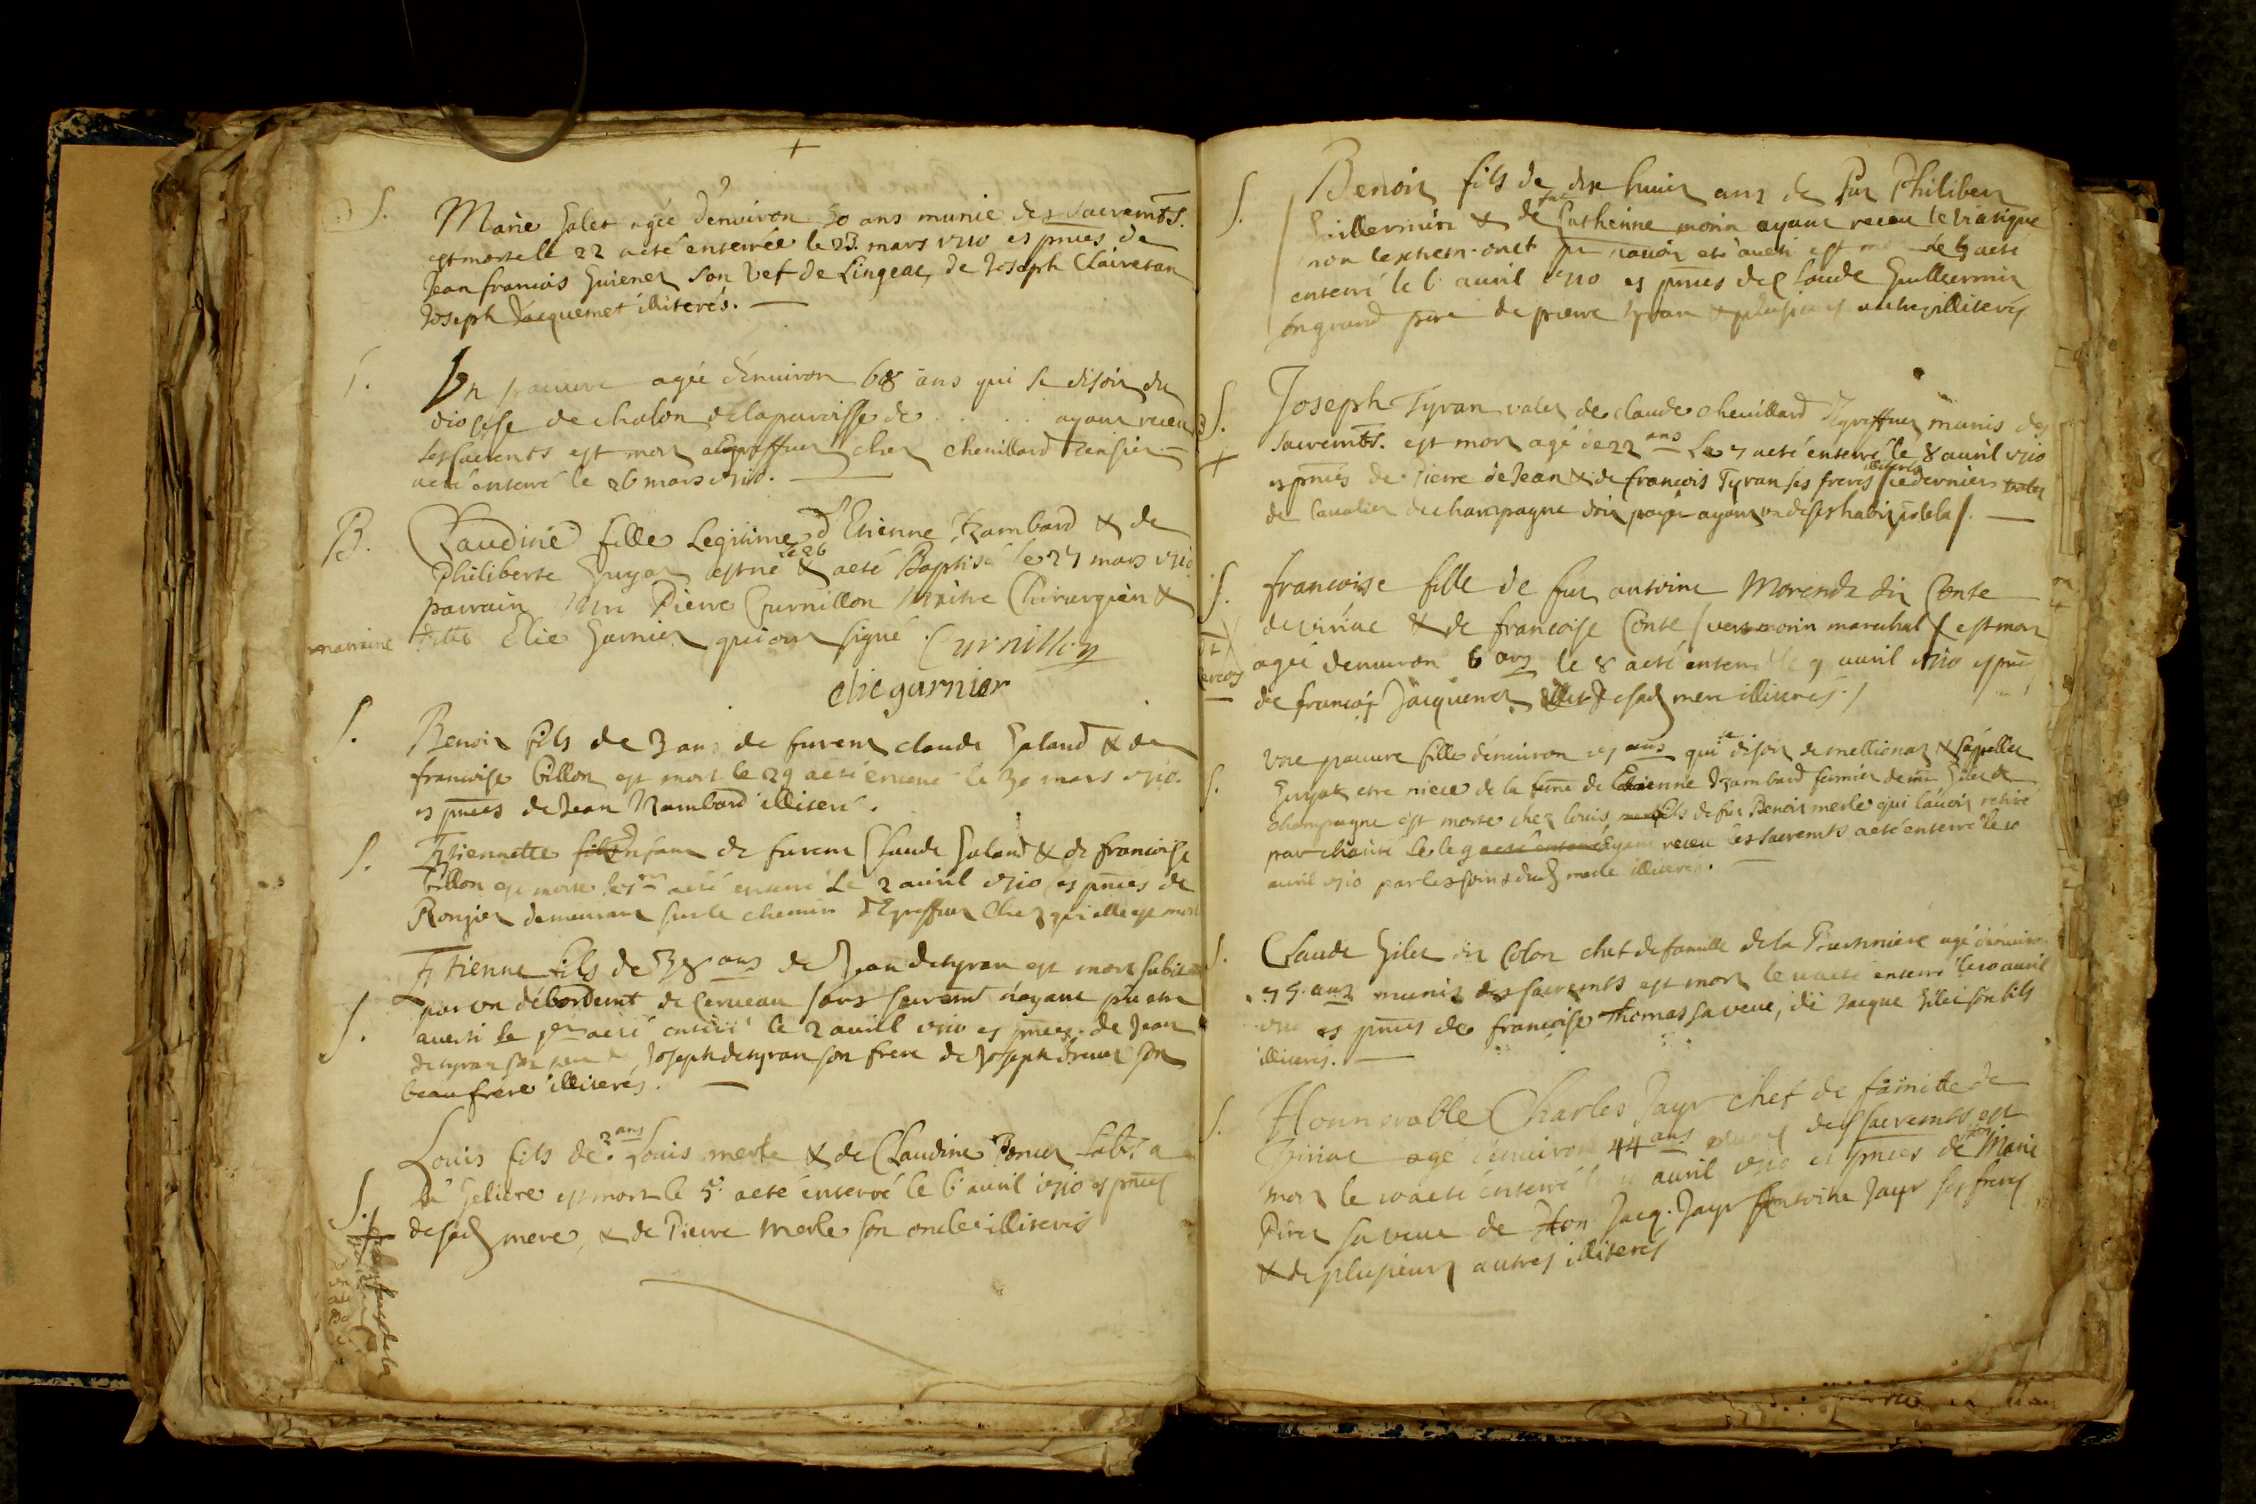 +
S. Marie Galet agée d'environ 50 ans munie des sacremts.
est morte le 22 a eté enterrée le 23 mars 1710 es pnces de
Jean francois Guienet son vef de Lingeat, de Joseph Clairetan
Joseph Jacquemet illiterés.
S. Un pauvre agée d'environ 68 ans qui se disoit du
diocese de chalon de la paroisse de . . . ayant receu
les sacrents est mort chez chevillard
a eté enterré le 26 mars 1710.
B. Claudine fille Legitime d'Etienne Zambard & de
Philiberte Guyat est née le 26 & a eté Baptisé le 27 mars 1710
parrain Pierre Curnillon Maitre Chirurgien &
marraine Elie Garnier qui ont signé Curnillon
elie garnier
S. Benoit fils de 3 ans de furent claude Galand & de
francoise Gillon est mort le 29 a eté enterré le 30 mars 1710
es pnces de Jean Zambard illiteré.
S. Etiennette enfant de furent Claude Galand & de francoise
Gillon est morte le 1er a eté enterré Le 2 avril 1710 es pnces de
Rongier demeurant sur le chemin chez qui elle est mort
S. Etienne fils de 38 ans de Jean detyran est mort subit
par un débordemt de Cerveau sans sacremt n'ayant pu etre
averti le 1er a eté enterré le 2 avril 1710 es pnces de Jean
detyran son pere de Joseph detyran son frere de Joseph son
beaufrere illiterés.
S. Louis fils de 3 ans Louis merle & de Claudine habt a
la Geliere est mort le 5. a eté enterré le 6 avril 1710 es pnces
de sad mere, & de Pierre Merle son oncle illiterés
S. Benoit fils de dix huit ans de fut Philibert
Guillermin & de fut Catherine morin ayant receu le viatique
non l'extrem-onct pr n'avoir eté averti est mort le 5 a eté
enterré le 6 avril 1710 es pnces de Claude Guillermin
son grand pere de pierre tyran & plusieurs autres illiterés
S. Joseph Tyran valet de claude chevillard munis des
+ sacremts. est mort agé de 22 ans Le 7 a eté enterré le 8 avril 1710
es pnces de Pierre de Jean & de francois Tyran ses freres illiterés ce dernier valet
de Cavalier de champagne doit payer ayant un de ses habits
S. francoise fille de fut antoine Morendi dit Conte
de viriac & de francoise Conte / vers morin marechal / est mort
agée d'environ 6 ans le 8 a eté enterré le 9 avril 1710 es pnces
de francois Jacquemet & sad mere illiterés.
S. Une pauvre fille d'environ ans qui se disoit de mellionat & s'apeller
Guyat etre niece de la feme de Etienne Zambard fermier de mr Gilet de
champagne est morte chez louis fils de fut Benoit merle qui l'avoit retiré
par charité Le le 9 ayant receu les sacremts a eté enterré le 10
avril 1710 par les soins dud merle illiterés.
S. Claude Gilet dit Colon chef de famille de la agé d'environ
75. ans munis des sacremts est mort le a eté enterré le 10 avril
1710 es pnces de francoise Thomas sa veve, de Jacque Gilet son fils
illiterés.
S. Honnorable Charles Jayr chef de famille de
agé d'environ 44 ans munis des sacremts est
mort le 10 a eté enterré le avril 1710 es pnces de Marie
Piret sa veve de Hon Jacq. Jayr Antoine Jayr ses freres
& de plusieurs autres illiterés